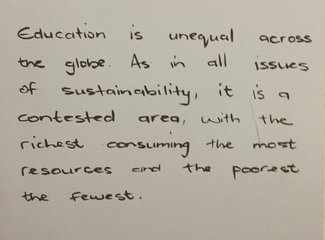 Education is unequal across
the globe. As in all issues
of sustainability, it is a
contested area, with the
richest consuming the most
resources and the poorest
the fewest.